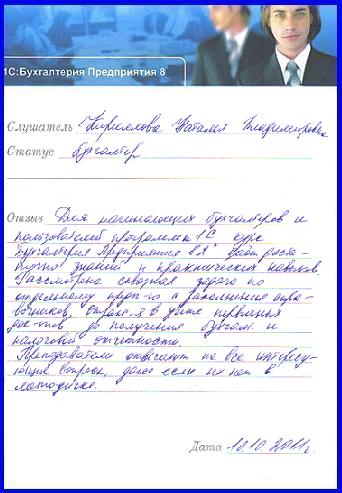 1С:Бухгалтерия Предприятия 8
Слушатель Кириллова Наталья Владимировна
Статус бухгалтер
Отзыв Для начинающих бухгалтеров и
пользователей программы 1С курс
"Бухгалтерия Предприятия 8" даёт доста-
точно знаний и практических навыков.
Рассмотрена сквозная задача по
от заполнения спра-
вочников, в учёте первичных
док-тов до получения бухгал. и
налоговой отчетности.
Преподаватели отвечают на все интересу-
ющие вопросы, даже если их нет в
методичке.
Дата 10.10.2011г.